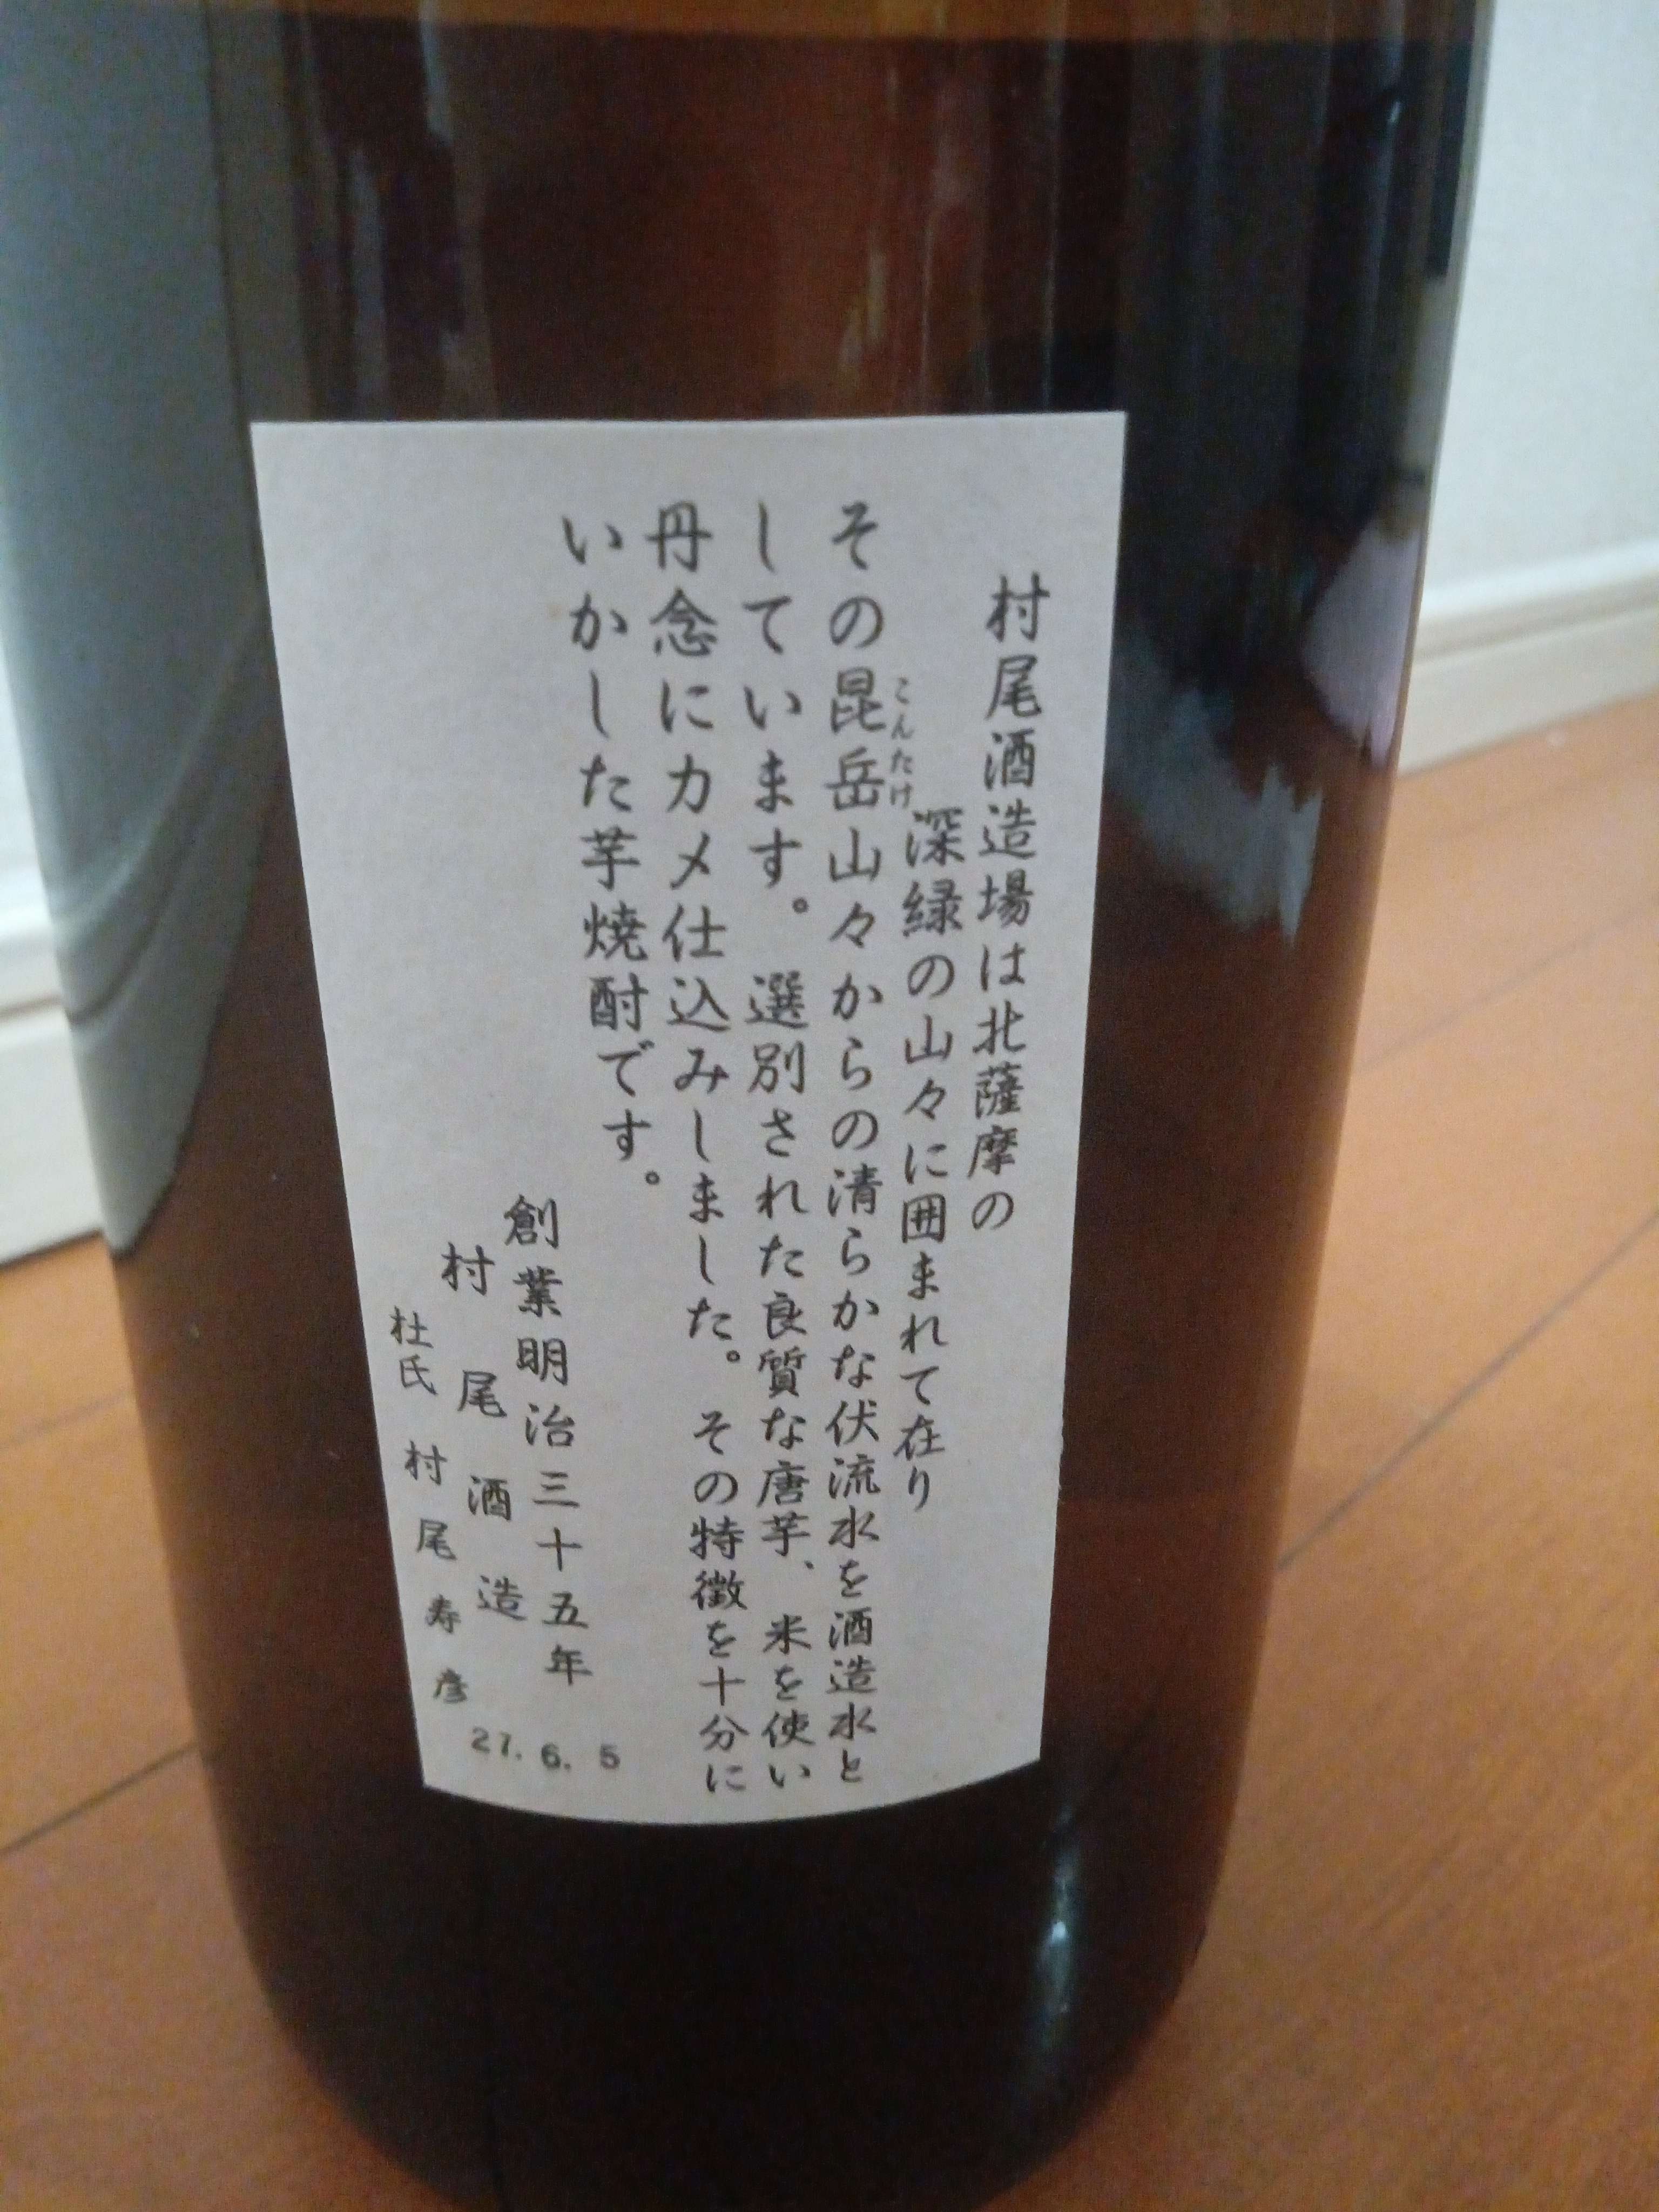 村尾酒造場は北薩摩の
深緑の山々に囲まれて在り
その昆岳山々からの清らかな伏流水を酒造水と
こんたけ
しています。選別された良質な唐芋、米を使い
丹念にカメ仕込みしました。その特徴を十分に
いかした芋焼酎です。
創業明治三十五年
村尾酒造
杜氏 村尾寿彦
27. 6. 5